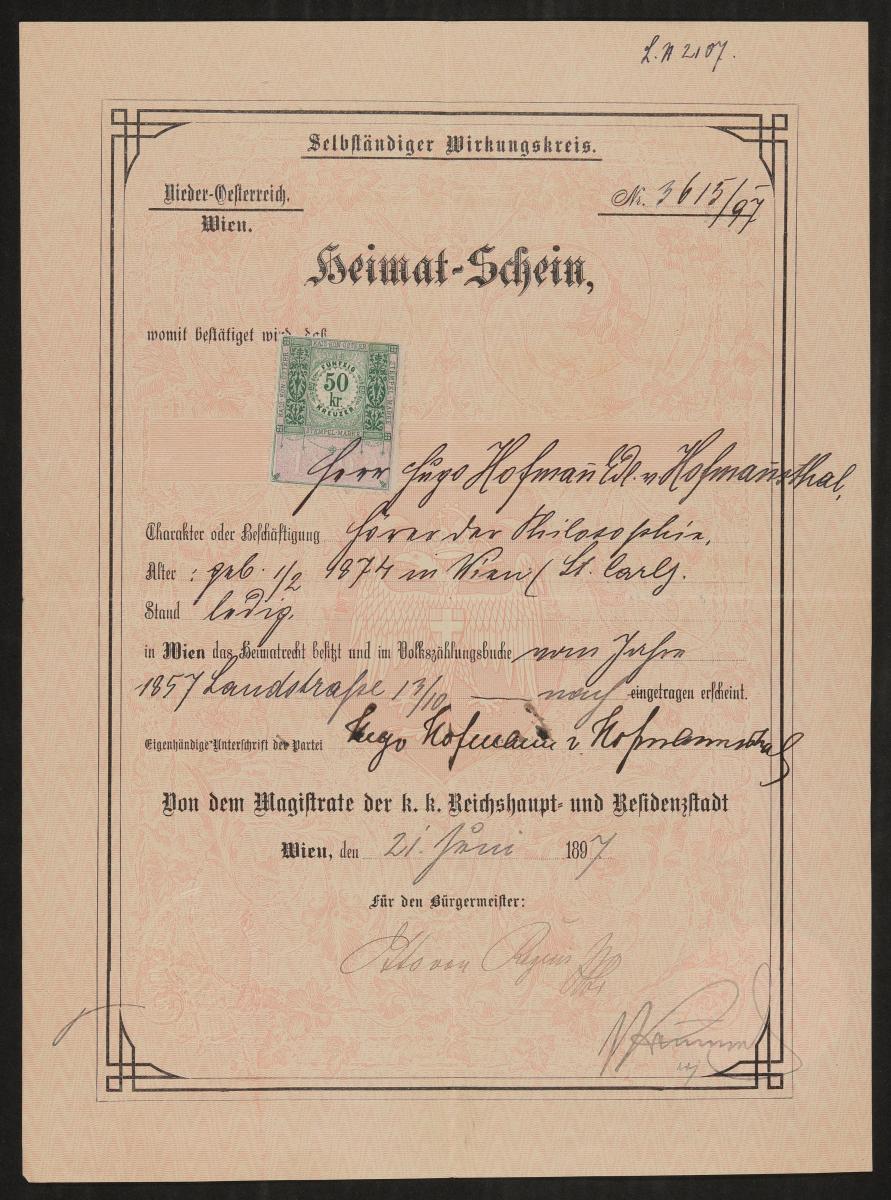 L. A 2107.
Selbständiger Wirkungskreis.
Nieder-Oesterreich.
Wien.
Nr. 3615/97
Heimat-Schein,
womit bestätiget wird, daß
KAIS. KÖN. ÖSTERR.
STEMPEL-MARKE
FÜNFZIG
50
kr.
KREUZER
STEMPEL-MARKE
Herr Hugo Hofman̄ Edl. v Hofman̄sthal,
Charakter oder Beschäftigung Hörer der Philosophie,
Alter : geb. 1/2 1874 in Wien (St. Carl).
Stand ledig.
in Wien das Heimatrecht besitzt und im Volkszählungsbuche vom Jahre
1857 Landstraße 13/10 — nach eingetragen erscheint.
Eigenhändige Unterschrift der Partei Hugo Hofmann v Hofmannsthal
Von dem Magistrate der k. k. Reichshaupt- und Residenzstadt
Wien, den 21. Juni 1897
Für den Bürgermeister: